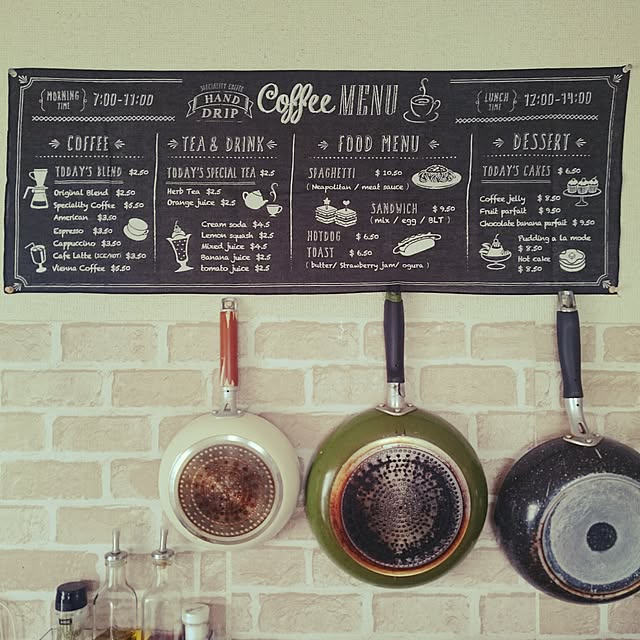 MORNING TIME 7:00-11:00
SPECIALITY COFFEE
HAND DRIP
Coffee MENU
LUNCH TIME 12:00-14:00
COFFEE
TODAY'S BLEND $2.50
Original Blend $2.50
Speciality Coffee $5.50
American $3.50
Espresso $3.50
Cappuccino $3.50
Cafe Latte (ICE/HOT) $3.50
Vienna Coffee $5.50
TEA & DRINK
TODAY'S SPECIAL TEA $2.5
Herb Tea $2.5
Orange juice $2.5
Cream soda $4.5
Lemon squash $2.5
Mixed juice $4.5
Banana juice $2.5
tomato juice $2.5
FOOD MENU
SPAGHETTI $10.50
(Neapolitan / meat sauce)
SANDWICH $9.50
(mix / egg / BLT)
HOTDOG $6.50
TOAST $6.50
(butter/ Strawberry jam/ ogura)
DESSERT
TODAY'S CAKES $6.50
Coffee jelly $8.50
Fruit parfait $9.50
Chocolate banana parfait $9.50
Pudding a la mode
$8.50
Hot cake
$8.50